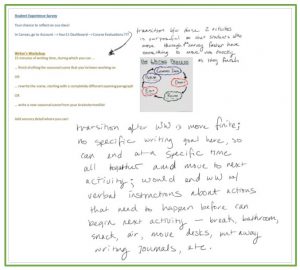 Student Experience Survey
Your chance to reflect on our class!
In Canvas, go to Account -> Your U Dashboard -> Course Evaluations ???
Writer's Workshop
15 minutes of writing time, during which you can ...
... finish drafting the seasonal scene that you've been working on
OR
... rewrite the scene, starting with a completely different opening paragraph
OR
... write a new seasonal scene from your brainstormed list!
Add sensory detail where you can!
transition btw these 2 activities
is purposeful so that students who
move through survey faster have
something to move into directly
as they finish
The Writing Process
transition after WW is more finite;
no specific writing goal here, so
can end at a specific time
all together and move to next
activity; would end WW w/
verbal instructions about actions
that need to happen before can
begin next activity — break, bathroom,
snack, air, move desks, put away
writing journals, etc.